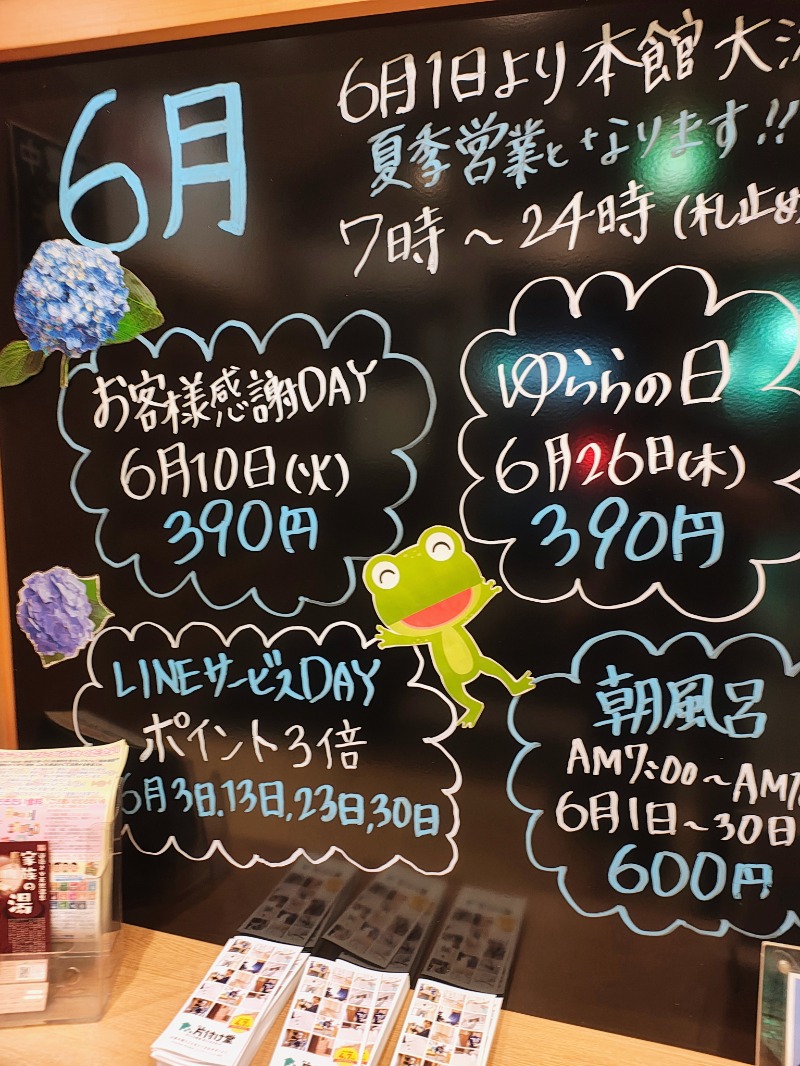 6月
6月1日より本館大
夏季営業となります!!
7時～24時(札止め
お客様感謝DAY
6月10日(火)
390円
ゆららの日
6月26日(木)
390円
LINEサービスDAY
ポイント3倍
6月3日,13日,23日,30日
朝風呂
AM7:00～AM
6月1日～30日
600円
家族の湯
片付け堂